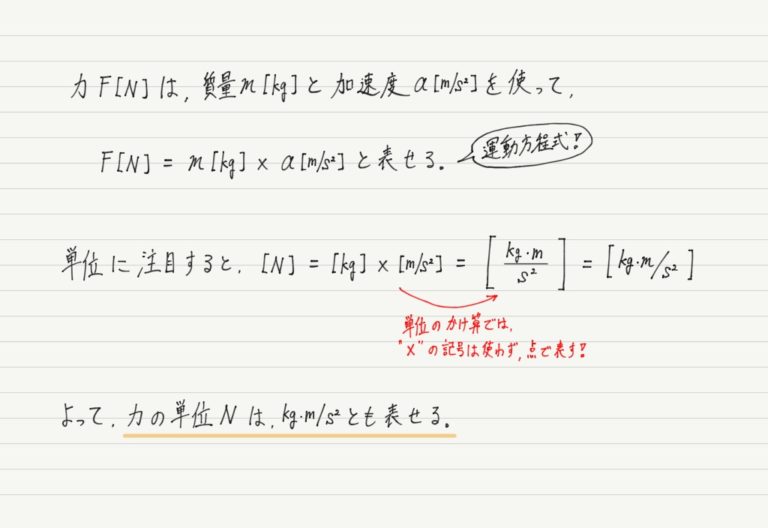 力 F[N] は, 質量m[kg]と加速度a[m/s²]を使って,
F[N] = m[kg] × a[m/s²] と表せる。
運動方程式!
単位に注目すると, [N] = [kg] × [m/s²] = [kg·m/s²] = [kg·m/s²]
単位のかけ算では,
"×"の記号は使わず, 点で表す!
よって, 力の単位Nは, kg·m/s²とも表せる。